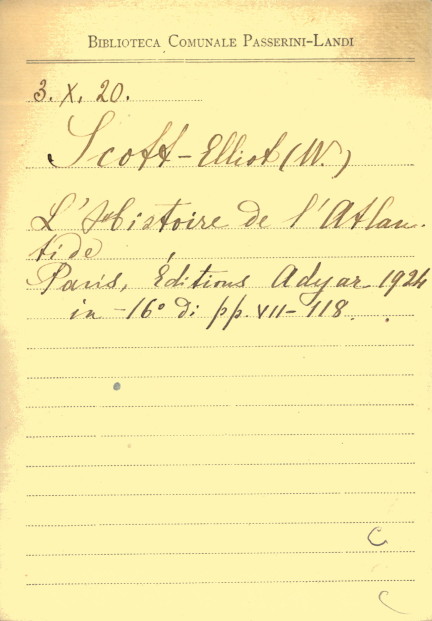 BIBLIOTECA COMUNALE PASSERINI-LANDI
3. X. 20.
Scott-Elliot (W.)
L'Histoire de l'Atlan-
tide
Paris, Éditions Adyar 1924
in -16° di pp. VII-118.
C